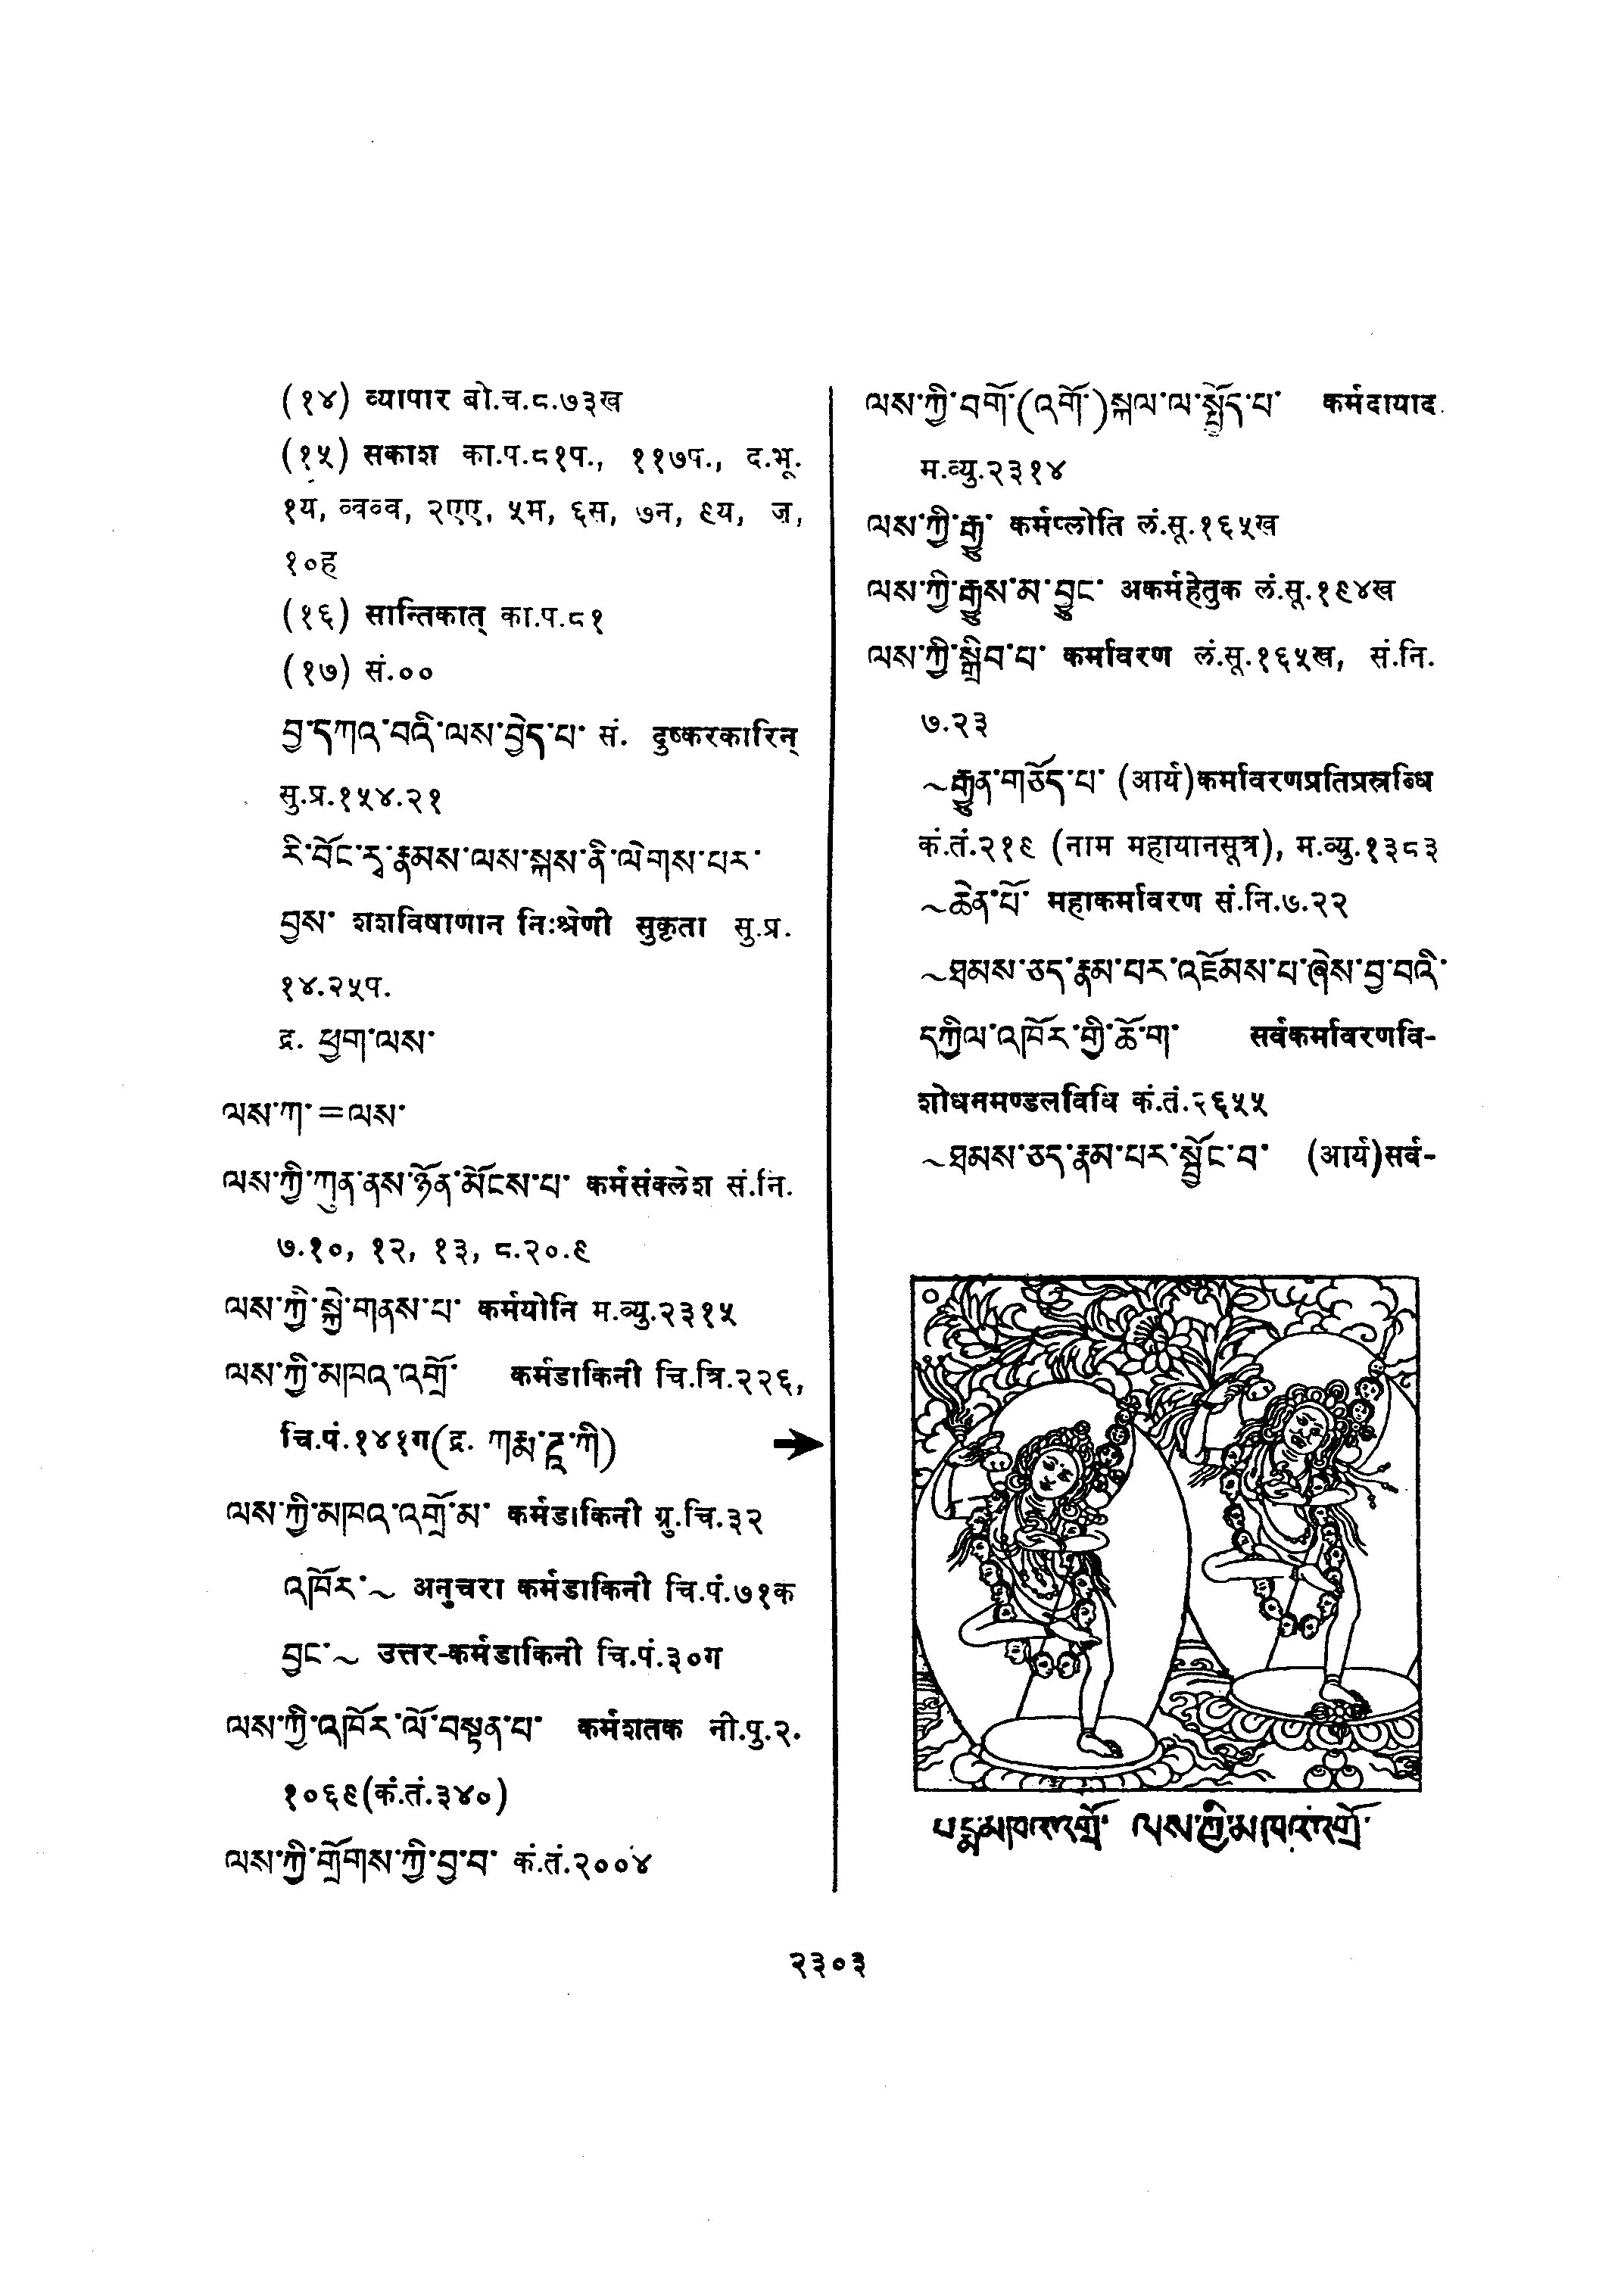 (१४) व्यापार बो.च.८.७३ख
(१५) सकाश का.प.८१प., ११७प., द.भू.
१य, व्वव्व, २एए, ५म, ६स, ७न, ९य, ज,
१०ह
(१६) सान्तिकात् का.प.८१
(१७) सं.००
བྱ་དཀའ་བའི་ལས་བྱེད་པ་ सं. दुष्करकारिन्
सु.प्र.१५४.२१
རི་བོང་རྭ་རྣམས་ལས་སྐས་ནི་ལེགས་པར་
བྱས་ शशविषाणान निःश्रेणी सुकृता सु.प्र.
१४.२५प.
द्र. ཕྱག་ལས་
ལས་ཀ་=ལས་
ལས་ཀྱི་ཀུན་ནས་ཉོན་མོངས་པ་ कर्मसंक्लेश सं.नि.
७.१०, १२, १३, ८.२०.९
ལས་ཀྱི་སྐྱེ་གནས་པ་ कर्मयोनि म.व्यु.२३१५
ལས་ཀྱི་མཁའ་འགྲོ་ कर्मडाकिनी चि.त्रि.२२६,
चि.पं.१४१ग(द्र. ཀརྨ་ཌཱ་ཀི)
ལས་ཀྱི་མཁའ་འགྲོ་མ་ कर्मडाकिनी ग्रु.चि.३२
འཁོར་~ अनुचरा कर्मडाकिनी चि.पं.७१क
བྱང་~ उत्तर-कर्मडाकिनी चि.पं.३०ग
ལས་ཀྱི་འཁོར་ལོ་བསྟན་པ་ कर्मशतक नी.पु.२.
१०६९(कं.तं.३४०)
ལས་ཀྱི་གྲོགས་ཀྱི་བྱ་བ་ कं.तं.२००४
ལས་ཀྱི་བགོ་(འགོ་)སྐལ་ལ་སྤྱོད་པ་ कर्मदायाद
म.व्यु.२३१४
ལས་ཀྱི་རྒྱུ་ कर्मप्लोति लं.सू.१६५ख
ལས་ཀྱི་རྒྱུས་མ་བྱུང་ अकर्महेतुक लं.सू.१९४ख
ལས་ཀྱི་སྒྲིབ་པ་ कर्मावरण लं.सू.१६५ख, सं.नि.
७.२३
~རྒྱུན་གཅོད་པ་ (आर्य)कर्मावरणप्रतिप्रस्रब्धि
कं.तं.२१९ (नाम महायानसूत्र), म.व्यु.१३८३
~ཆེན་པོ་ महाकर्मावरण सं.नि.७.२२
~ཐམས་ཅད་རྣམ་བར་འཇོམས་པ་ཞེས་བྱ་བའི་
དཀྱིལ་འཁོར་གྱི་ཆོ་ག་ सर्वकर्मावरणवि-
शोधनमण्डलविधि कं.तं.२६५५
~ཐམས་ཅད་རྣམ་པར་སྦྱོང་བ་ (आर्य)सर्व-
པདྨ་མཁའ་འགྲོ་ ལས་ཀྱི་མཁའ་འགྲོ་
२३०३